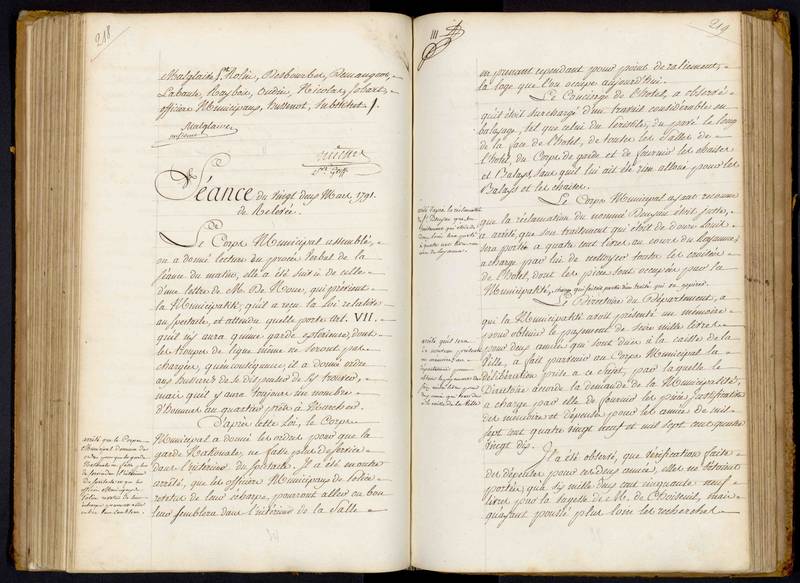 218
Malglaive, Rolin, Desbourbes, Demangeot,
Labaute, Haybois, Oudin, Nicolas, Jobart,
officiers Municipaux, Hussenot, Substitut
Malglaive
Séance du vingt deux Mars 1791.
de Relevée.
Le Corps Municipal assemblé,
on a donné lecture du procès verbal de la
séance du matin, elle a été suivie de celle
d'une lettre de M. De Noue, qui prévient
la Municipalité, qu'il a reçu la loi relative
au spectacle, et attendu qu'elle porte art. VII.
qu'il n'y aura qu'une garde extérieure, dont
les troupes de ligne même ne seront pas
chargées, qu'en conséquence, il a donné ordre
aux hussards de se dispenser de s'y trouver,
mais qu'il y aura toujours un nombre
d'hommes au quartier prêts à marcher.
D'après cette loi, le Corps
Municipal a donné les ordres pour que la
garde Nationale, ne fasse plus de service
dans l'intérieur du spectacle. Il a été en outre
arrêté, que les officiers Municipaux de police
revetus de leur écharpe, pourront aller où bon
leur semblera dans l'intérieur de la Salle
arrêté que le Corps
Municipal donnera des
ordres pour que la garde
Nationale ne fasse plus
de service dans l'intérieur
du spectacle et que les
officiers Municipaux de
police revetus de leur
écharpe pourront aller
où bon leur semblera.
III
219
en prenant cependant pour point de raliement,
la loge que l'on occupe aujourd'hui.
Le Concierge de l'hôtel, a observé
qu'il étoit surchargé d'un travail considérable en
balayage, tel que celui du Peristile, du pavé le long
de la face de l'hôtel, de toutes les salles de
l'hôtel, du Corps de garde et de fournir les chaises
et Balays, sans qu'il lui ait été rien alloué pour les
Balays et les chaises.
Le Corps Municipal ayant reconnu
que la réclamation du nommé étoit juste,
a arrêté, que son traitement qui étoit de douze louis
sera porté à quatre cent livres au cours du Royaume,
à charge par lui de nettoyer toutes les croisées
de l'hôtel, dont les pièces sont occupées par la
Municipalité, charge qui faisoit partie d'un traité qui va expirer.
Le Directoire du Département, à
qui la Municipalité avoit présenté un mémoire
pour obtenir le payement de seize mille livres
pour deux années qui sont dues à la caisse de la
Ville, a fait parvenir au Corps Municipal la
délibération prise à ce sujet, par laquelle le
Directoire accorde la demande de la Municipalité,
à charge par elle de fournir les pièces justificatives
des mémoires et dépenses pour les années de mil
sept cent quatre vingt neuf et mil sept cent quatre
vingt dix.
Il a été observé, que vérification faite
des dépenses pour ces deux années, elles ne seroient
portées, qu'à dix mille deux cent cinquante neuf
livres pour la sagesse de M. de Choiseuil, mais
qu'ayant poussé plus loin les recherches